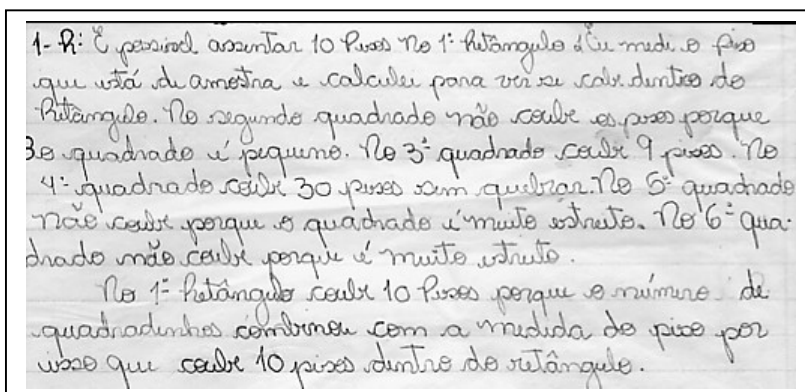 1- R: É possivel assentar 10 Pisos no 1º Retângulo i Eu medi o piso
que está de amostra e calculei para ver se cabe dentro do
Retângulo. No segundo quadrado não coube os pisos porque
o quadrado é pequeno. No 3º quadrado coube 9 pisos. No
4º quadrado coube 30 pisos sem quebrar. No 5º quadrado
não coube porque o quadrado é muito estreito. No 6º qua-
drado não coube porque é muito estreito.
No 1º Retângulo coube 10 Pisos porque o número de
quadradinhos combinou com a medida do piso por
isso que coube 10 pisos dentro do retângulo.